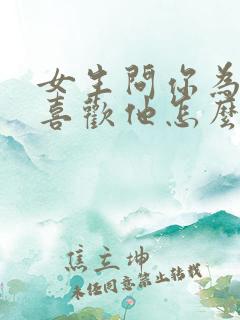 女生問你為
喜歡他怎麼
焦立坤
未经同意禁止转载